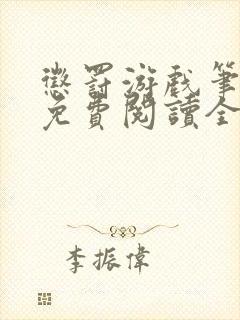 懲罰游戲筆
免費閱讀全
李振偉